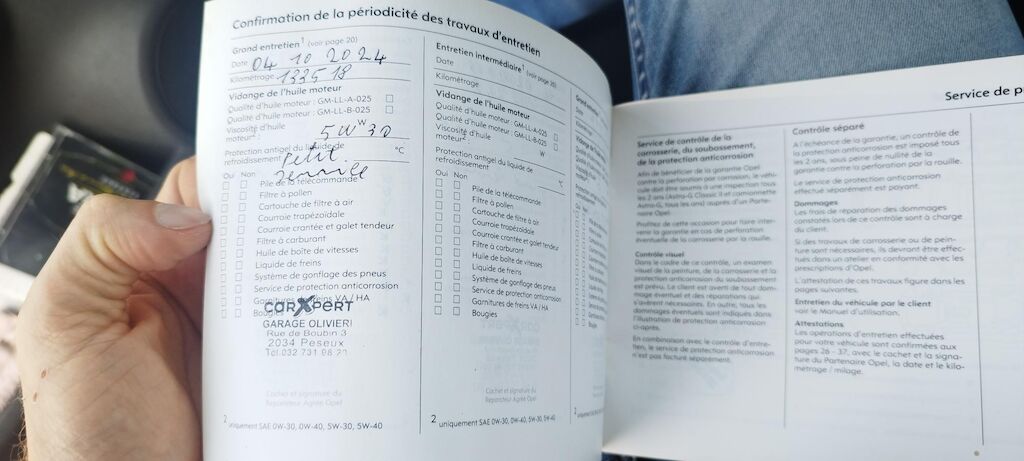 Confirmation de la périodicité des travaux d'entretien
Grand entretien¹ (voir page 20)
Date 04 10 2024
Kilométrage 133518
Vidange de l'huile moteur
Qualité d'huile moteur : GM-LL-A-025
Qualité d'huile moteur : GM-LL-B-025
Viscosité d'huile
moteur² : 5W W 30
Protection antigel du liquide de
refroidissement °C
Petit
Oui Non
Pile de la télécommande
Filtre à pollen
Cartouche de filtre à air
Courroie trapézoïdale
Courroie crantée et galet tendeur
Filtre à carburant
Huile de boîte de vitesses
Liquide de freins
Système de gonflage des pneus
Service de protection anticorrosion
Garnitures de freins VA / HA
Bougies
carXpert
GARAGE OLIVIERI
Rue de Boubin 3
2034 Peseux
Tél.032 731 98 21
Cachet et signature du
Réparateur Agréé Opel
² uniquement SAE 0W-30, 0W-40, 5W-30, 5W-40
Entretien intermédiaire¹ (voir page 20)
Date
Kilométrage
Vidange de l'huile moteur
Qualité d'huile moteur : GM-LL-A-025
Qualité d'huile moteur : GM-LL-B-025
Viscosité d'huile
moteur² : W
Protection antigel du liquide de
refroidissement °C
Oui Non
Pile de la télécommande
Filtre à pollen
Cartouche de filtre à air
Courroie trapézoïdale
Courroie crantée et galet tendeur
Filtre à carburant
Huile de boîte de vitesses
Liquide de freins
Système de gonflage des pneus
Service de protection anticorrosion
Garnitures de freins VA / HA
Bougies
Cachet et signature du
Réparateur Agréé Opel
² uniquement SAE 0W-30, 0W-40, 5W-30, 5W-40
Service de p
Service de contrôle de la
carrosserie, du soubassement,
de la protection anticorrosion
Afin de bénéficier de la garantie Opel
contre la perforation par corrosion, le véhi-
cule doit être soumis à une inspection tous
les 2 ans (Astra-G Classic II et camionnette
Astra-G, tous les ans) auprès d'un Parte-
naire Opel.
Profitez de cette occasion pour faire inter-
venir la garantie en cas de perforation
éventuelle de la carrosserie par la rouille.
Contrôle visuel
Dans le cadre de ce contrôle, un examen
visuel de la peinture, de la carrosserie et la
protection anticorrosion du soubassement
est prévu. Le client est averti de tout dom-
mage éventuel et des réparations qui
s'avèrent nécessaires. En outre, tous les
dommages éventuels sont indiqués dans
l'illustration de protection anticorrosion
ci-après.
En combinaison avec le contrôle d'entre-
tien, le service de protection anticorrosion
n'est pas facturé séparément.
Contrôle séparé
A l'échéance de la garantie, un contrôle de
la protection anticorrosion est imposé tous
les 2 ans, sous peine de nullité de la
garantie contre la perforation par la rouille.
Le service de protection anticorrosion
effectué séparément est payant.
Dommages
Les frais de réparation des dommages
constatés lors de ce contrôle sont à charge
du client.
Si des travaux de carrosserie ou de pein-
ture sont nécessaires, ils devront être effec-
tués dans un atelier en conformité avec les
prescriptions d'Opel.
L'attestation de ces travaux figure dans les
pages suivantes.
Entretien du véhicule par le client
voir le Manuel d'utilisation.
Attestations
Les opérations d'entretien effectuées
pour votre véhicule sont confirmées aux
pages 26 - 37, avec le cachet et la signa-
ture du Partenaire Opel, la date et le kilo-
métrage / milage.